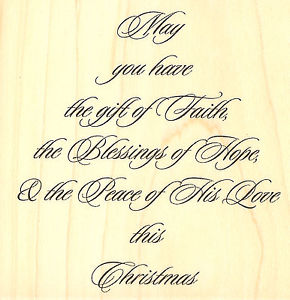 May
you have
the gift of Faith,
the Blessings of Hope,
& the Peace of His Love
this
Christmas